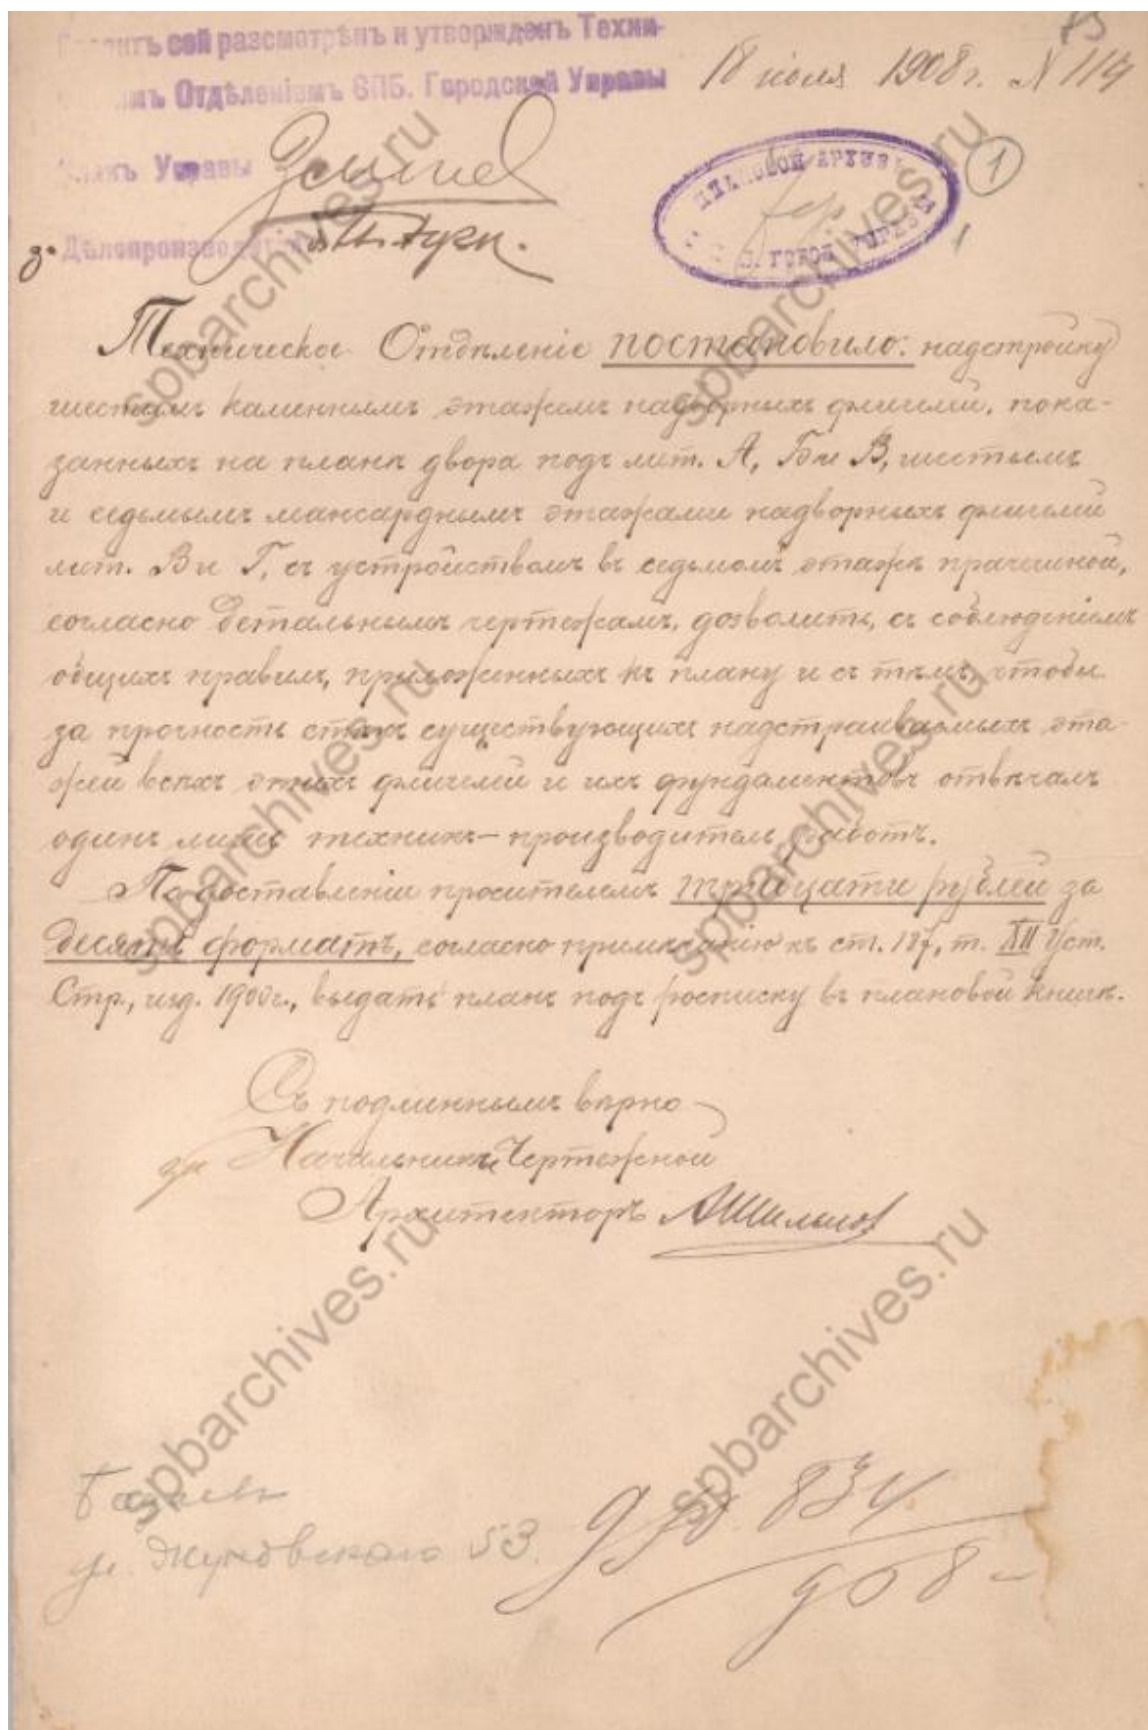 сей разсмотрѣнъ и утвержденъ Техни-
Отдѣленіемъ СПБ. Городской Управы
18 іюля 1908 г. № 114
Управы
ПЛАНОВОЙ АРХИВЪ
ГОРОД. УПРАВЫ
1
1
Дѣлопроизводитель
Техническое Отдѣленіе постановило: надстройку
шестымъ каменнымъ этажемъ надворныхъ флигелей, пока-
занныхъ на планѣ двора подъ лит. А, Б и В, шестымъ
и седьмымъ мансарднымъ этажами надворныхъ флигелей
лит. В и Г, съ устройствомъ въ седьмомъ этажѣ прачешной,
согласно детальнымъ чертежамъ, дозволить, съ соблюденіемъ
общихъ правилъ, приложенныхъ къ плану и съ тѣмъ, чтобы
за прочность стѣнъ существующихъ надстраиваемыхъ эта-
жей всѣхъ этихъ флигелей и ихъ фундаментовъ отвѣчалъ
одинъ лишь техникъ-производитель работъ.
По доставленіи просителемъ тридцати рублей за
десять форматъ, согласно примѣчанію къ ст. 187, т. XII Уст.
Стр., изд. 1900 г., выдать планъ подъ росписку въ плановой книгѣ.
Съ подлиннымъ вѣрно
за Начальника Чертежной
Архитекторъ
ул. Жуковскаго 53.
834
908
spbarchives.ru
spbarchives.ru
spbarchives.ru
spbarchives.ru
spbarchives.ru
spbarchives.ru